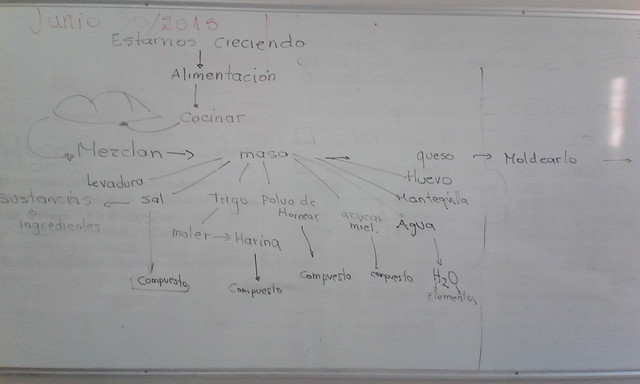 Junio /2015
Estamos creciendo
Alimentación
Cocinar
Mezclan masa queso Moldearlo
Levadura Huevo
sustancias sal Trigo Polvo de Hornear Mantequilla
ingredientes azucar miel. Água
moler Harina
Compuesto Compuesto Compuesto compuesto H2O
elementos